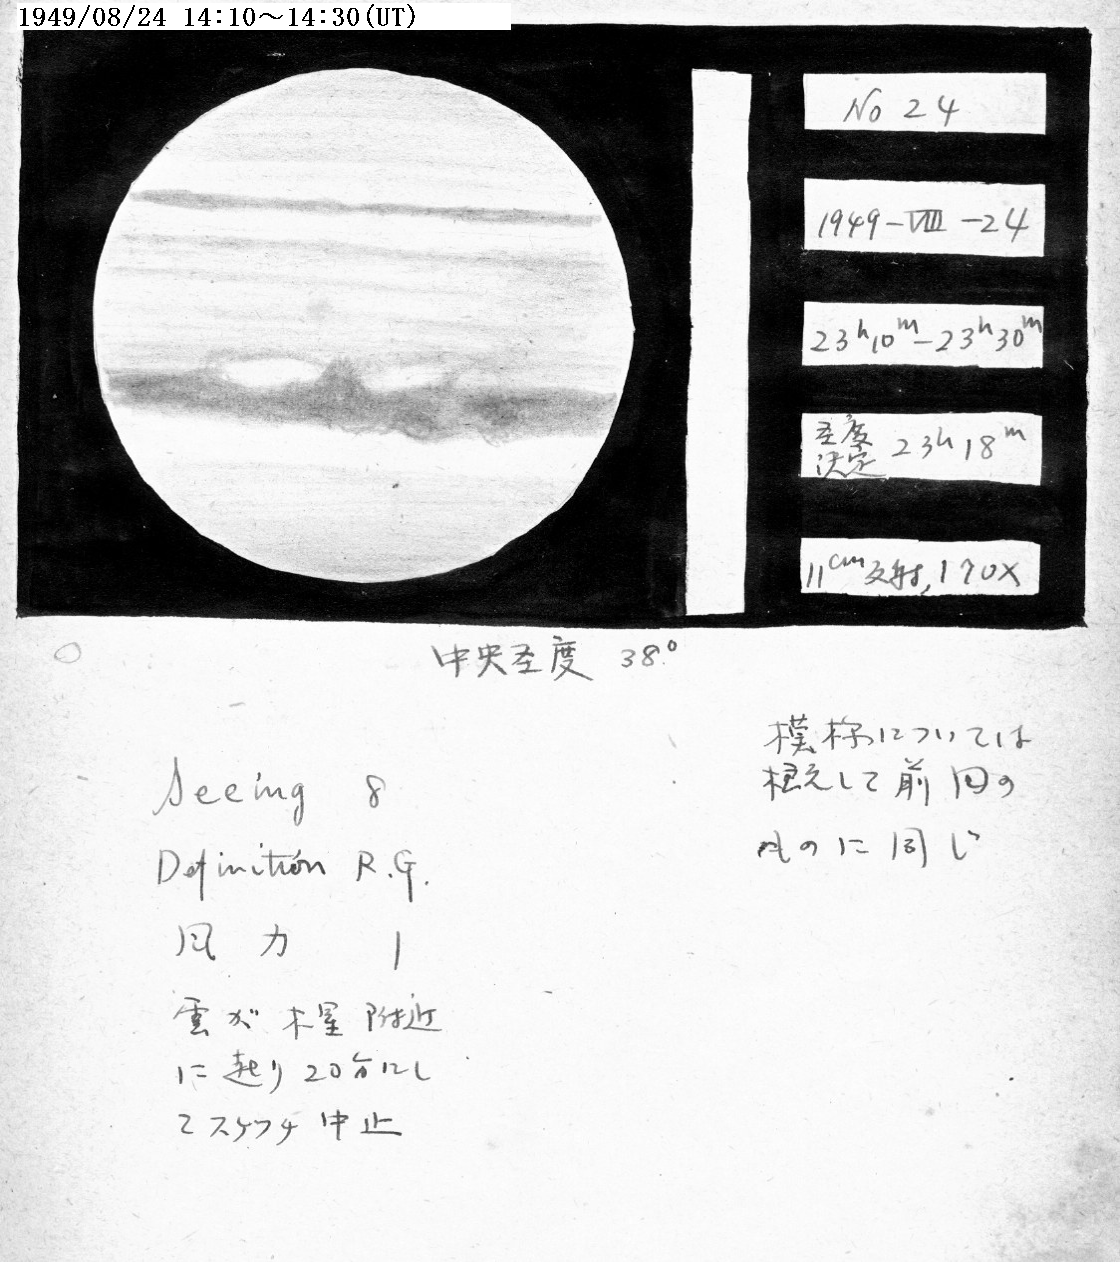 1949/08/24 14:10～14:30(UT)
No 24
1949-VIII-24
23h10m-23h30m
圣度
決定 23h18m
11cm反射, 170X
中央圣度 38°
Seeing 8
Definition R.G.
風力 1
雲が木星附近
に起り20分にし
てスケッチ中止
模様については
して前回の
ものに同じ